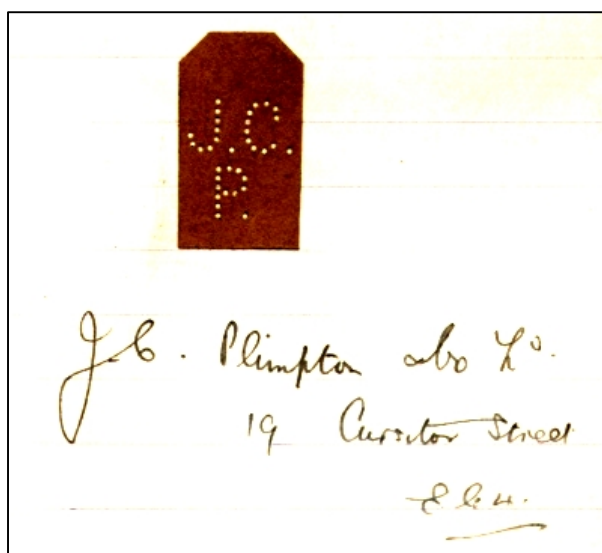 J.C.
P.
J.C. Plimpton & Co Ld.
19 Cursitor Street
E.C.4.